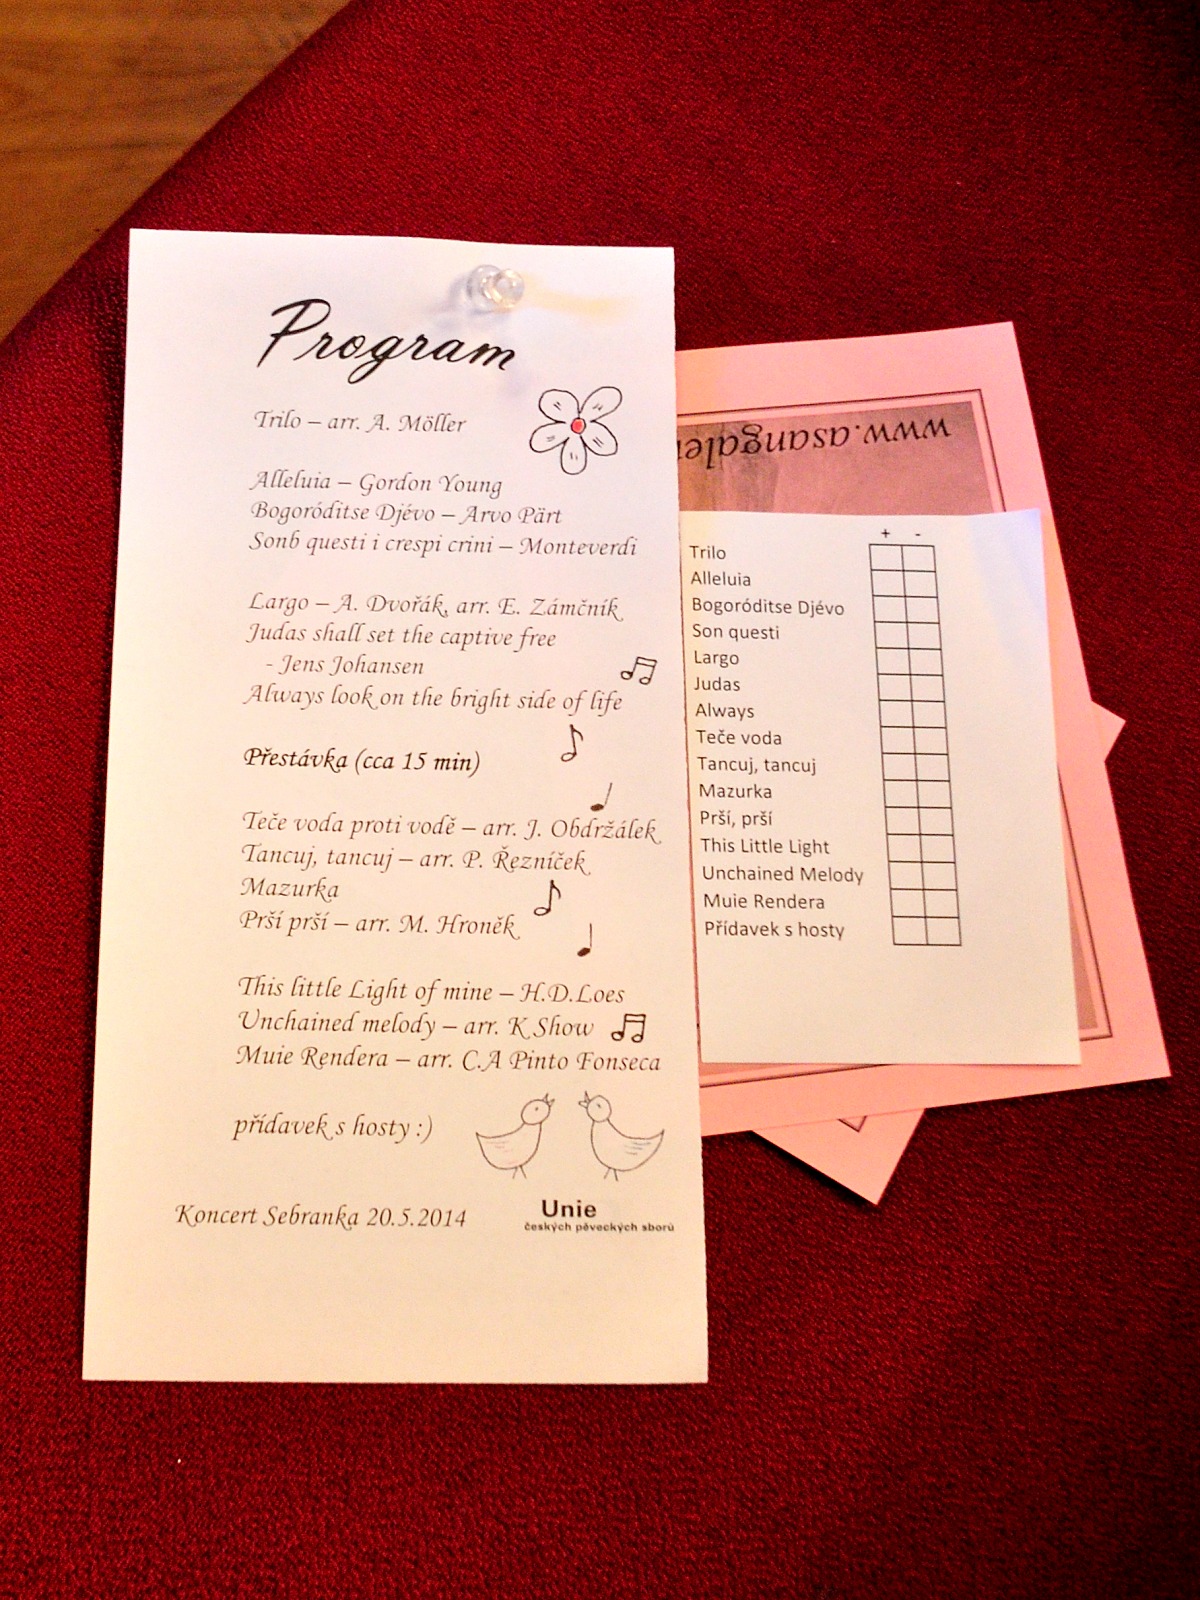 Program
Trilo – arr. A. Möller
Alleluia – Gordon Young
Bogoróditse Djévo – Arvo Pärt
Sonb questi i crespi crini – Monteverdi
Largo – A. Dvořák, arr. E. Zámčník
Judas shall set the captive free
- Jens Johansen
Always look on the bright side of life
Přestávka (cca 15 min)
Teče voda proti vodě – arr. J. Obdržálek
Tancuj, tancuj – arr. P. Řezníček
Mazurka
Prší prší – arr. M. Hroněk
This little Light of mine – H.D.Loes
Unchained melody – arr. K Show
Muie Rendera – arr. C.A Pinto Fonseca
přídavek s hosty :)
Koncert Sebranka 20.5.2014
Unie
českých pěveckých sborů
www.asangaler
+ -
Trilo
Alleluia
Bogoróditse Djévo
Son questi
Largo
Judas
Always
Teče voda
Tancuj, tancuj
Mazurka
Prší, prší
This Little Light
Unchained Melody
Muie Rendera
Přídavek s hosty